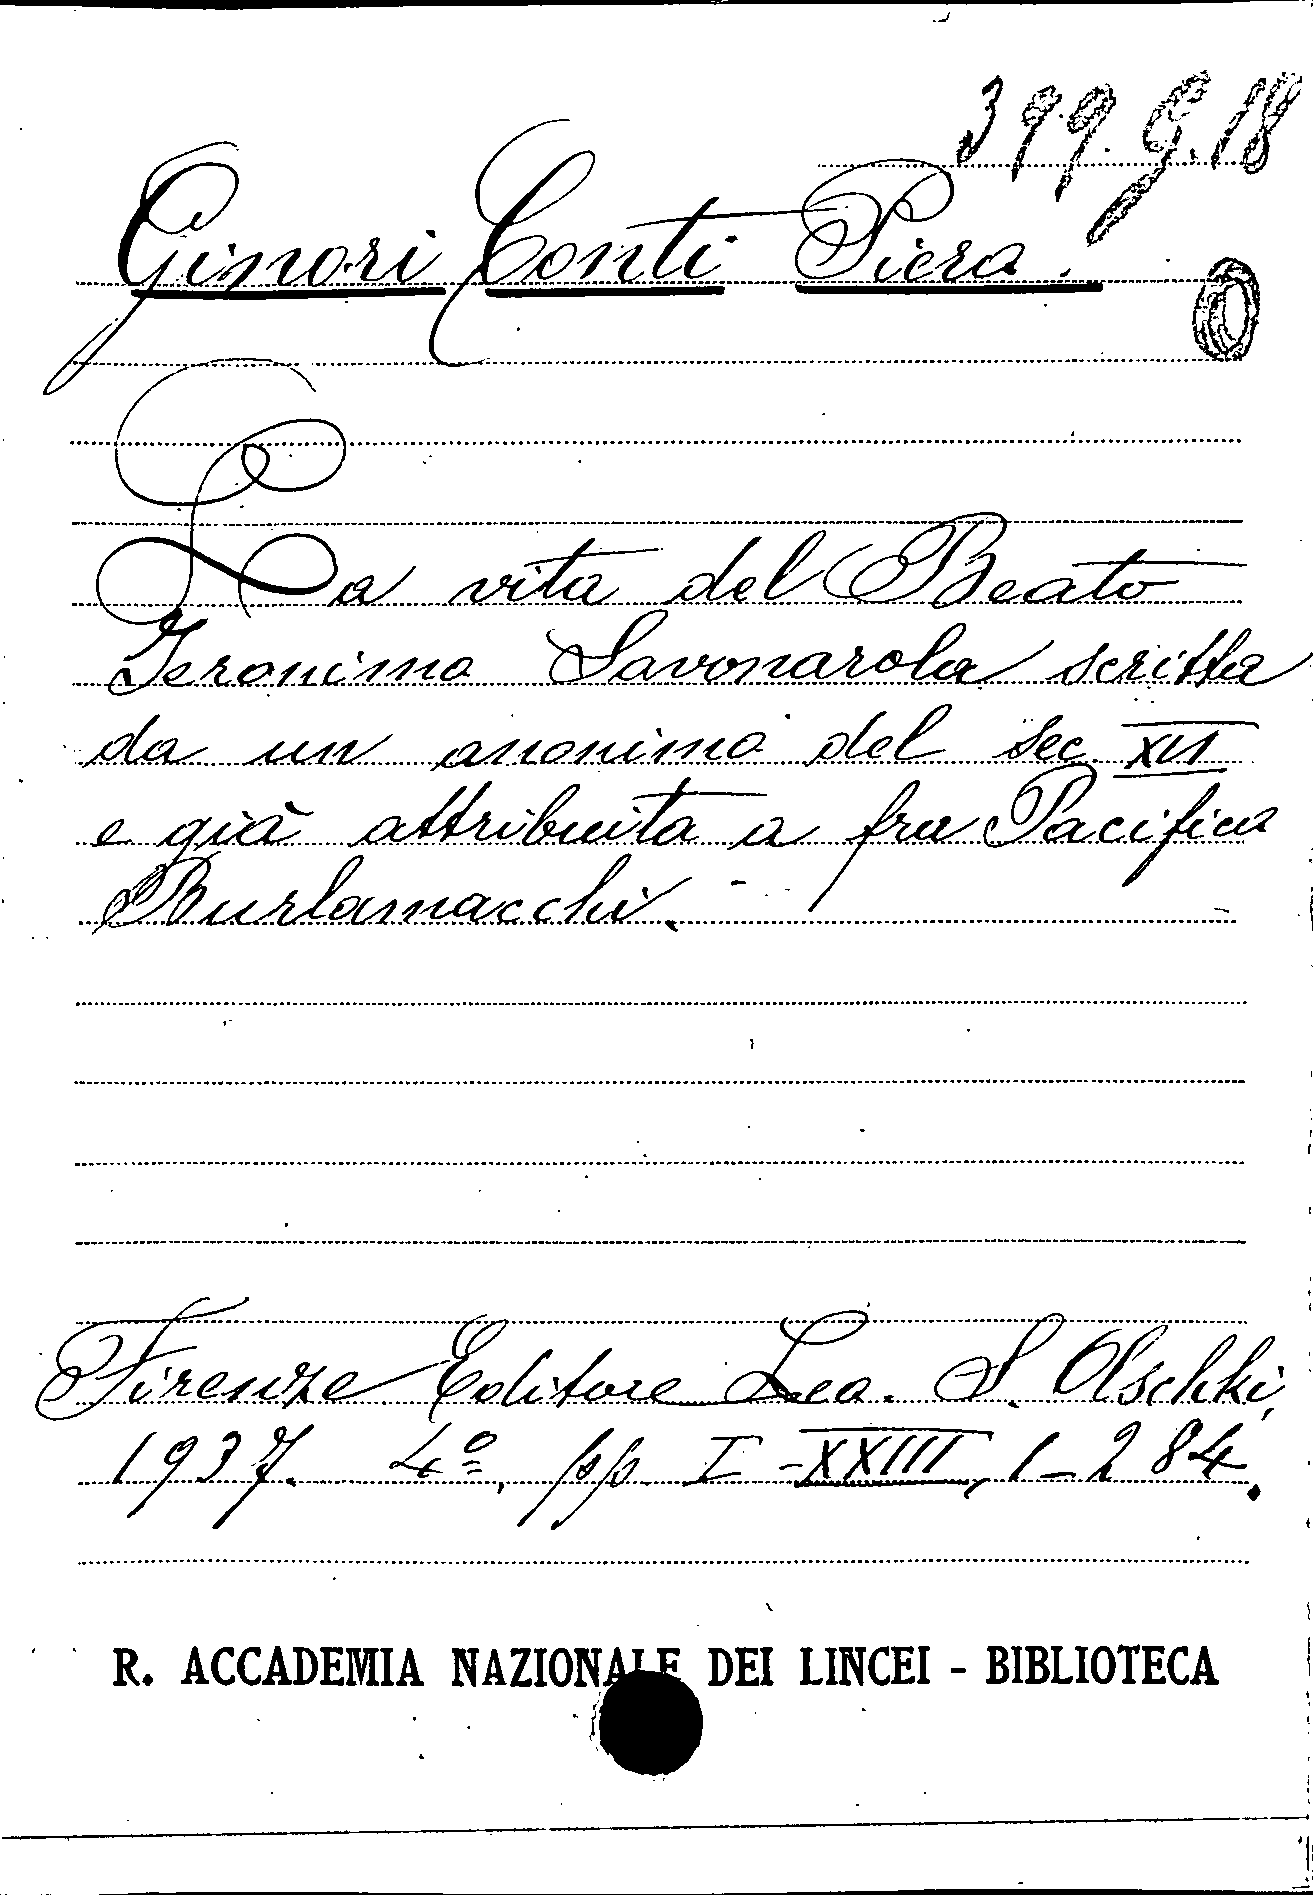 399.G.18
Ginori Conti Piera.
La vita del Beato
Jeronimo Savonarola scritta
da un anonimo del sec. XVI
e già attribuita a fra Pacifico
Burlamacchi.
Firenze Editore Leo. S. Olschki,
1937. 4º, pp. I-XXIII, 1-284.
R. ACCADEMIA NAZIONALE DEI LINCEI - BIBLIOTECA